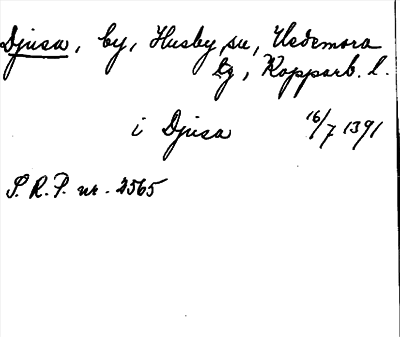 Djusa, by, Husby, su, Hedemora
tg, Kopparb. l.
i Djusa 16/7 1391
S. R. P. nr. 2565